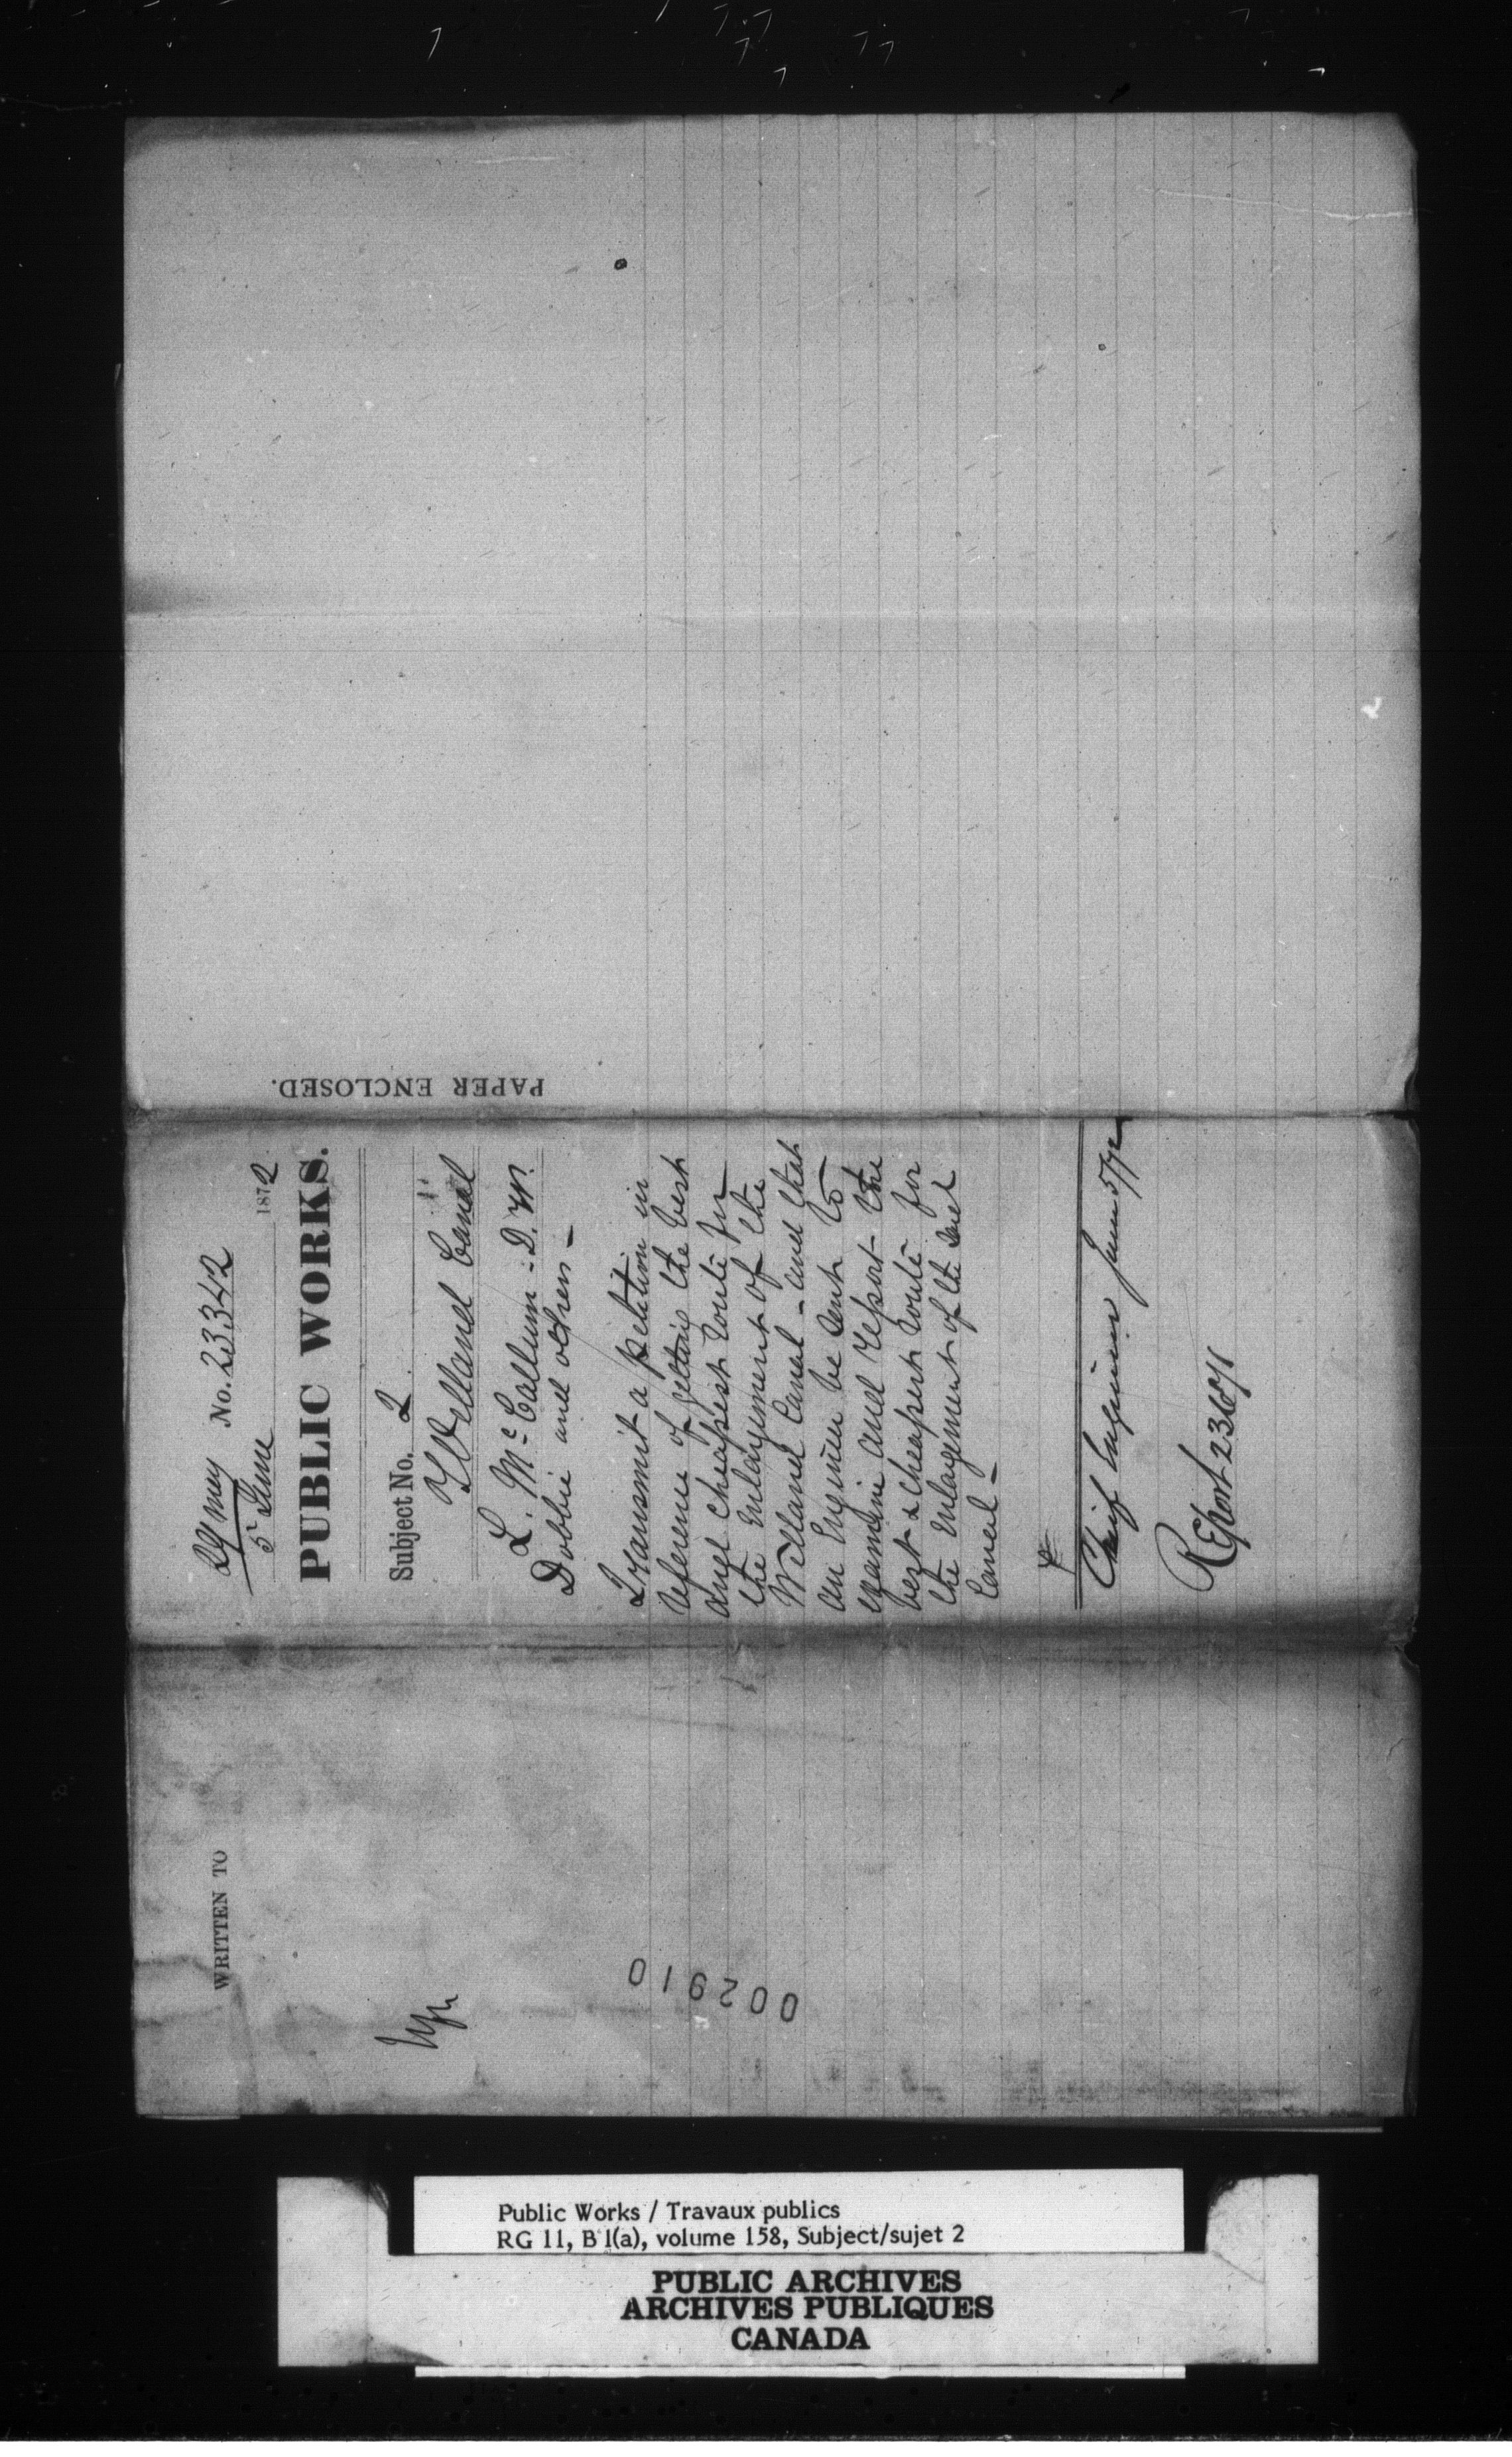 29 May No. 23342
5th June 1872
PUBLIC WORKS.
Subject No. 2
Welland Canal
L. McCallum - D. W.
Dobbie and others -
Transmit a petition in
reference of getting the best
and cheapest route for
the Enlargement of the
Welland Canal - and that
an Engineer be sent to
examine and report the
best & cheapest route for
the Enlargement of the said
Canal -
Chief Engineer June 5/72
Report 23671
PAPER ENCLOSED.
WRITTEN TO
002910
Public Works / Travaux publics
RG 11, B 1(a), volume 158, Subject/sujet 2
PUBLIC ARCHIVES
ARCHIVES PUBLIQUES
CANADA